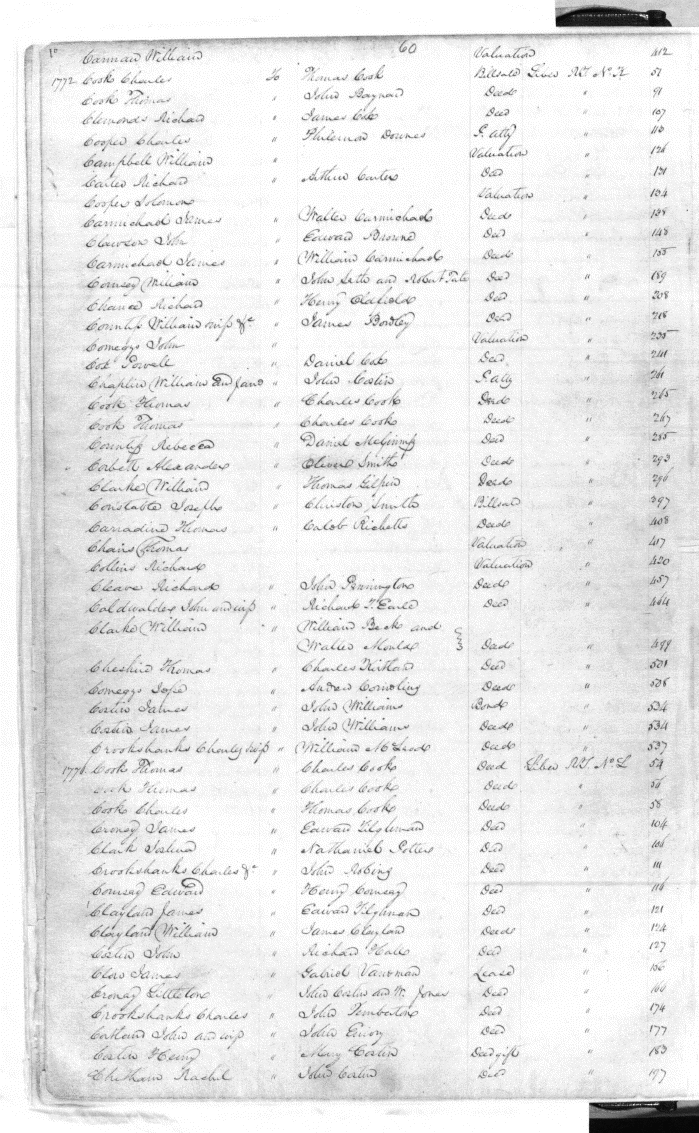 60
Carman William Valuation 412
1772 Cook Charles to Thomas Cook Billsale Liber RT No K 51
Cook Thomas " John Baynard Deed " 91
Clemonds Richard " James Cox Deed " 107
Cooper Charles " Philemon Downes P. atty " 113
Campbell William " Valuation " 126
Carter Richard " Arthur Carter Deed " 131
Cooper Solomon Valuation " 134
Carmichael James " Walter Carmichael Deed " 138
Clawson John " Edward Browne Deed " 148
Carmichael James " William Carmichael Deed " 155
Comegy William " John Seth and Robert Tate Deed " 189
Chance Richard " Henry Oldfield Deed " 208
Countiss William wife &c " James Bordley Deed " 218
Comegys John " Valuation " 235
Cox Powell " Daniel Cox Deed " 241
Chaplin William and Jane " John Costin P. atty " 261
Cook Thomas " Charles Cook Deed " 265
Cook Thomas " Charles Cook Deed " 267
Countiss Rebecca " Daniel Deed " 285
Corbett Alexander " Oliver Smith Deed " 293
Clarke William " Thomas Gilpin Deed " 296
Constable Joseph " Smith Billsale " 397
Carradine Thomas " Caleb Ricketts Deed " 408
Chairs Thomas Valuation " 417
Collins Richard Valuation " 420
Cleave Richard " John Pennington Deed " 457
Caldwalder John and wife " Richard T. Earle Deed " 464
Clarke William " William Beck and
Walter Moulds Deed " 499
Cheshire Thomas " Charles Deed " 501
Comegys Jesse " Andrew Deed " 508
Costin James " John Williams Bond " 534
Costin James " John Williams Deed " 534
Crookshanks Charles wife " William McLeod Deed " 537
1774 Cook Thomas " Charles Cook Deed Liber RT No L 54
Cook Thomas " Charles Cook Deed " 56
Cook Charles " Thomas Cook Deed " 58
Croney James " Edward Tilghman Deed " 104
Clark Joshua " Nathaniel Potter Deed " 106
Crookshanks Charles &c " John Robins Deed " 111
Comegy Edward " Henry Comegy Deed " 116
Clayland James " Edward Tilghman Deed " 121
Clayland William " James Clayland Deed " 124
Costin John " Richard Hall Deed " 127
Clow James " Gabriel Vansman Lease " 156
Croney Littleton " John Costin and W. Jones Deed " 160
Crookshanks Charles " John Pemberton Deed " 174
John and wife " John Emory Deed " 177
Costin Henry " Mary Costin Deed gift " 183
Chetham Rachel " John Costin Deed " 197